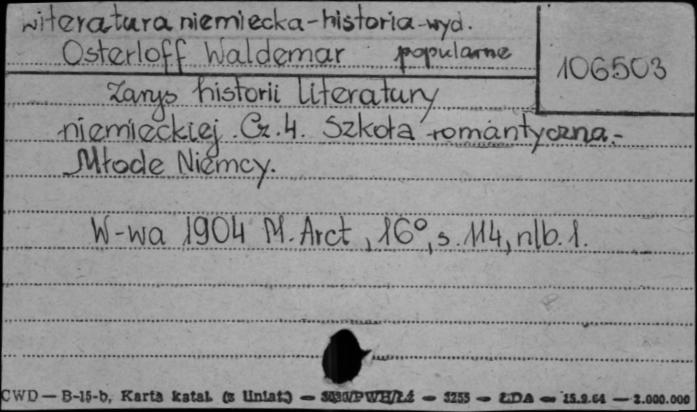 Literatura niemiecka-historia-wyd.
Osterloff Waldemar popularne
106503
Zarys historii literatury
niemieckiej. Cz. 4. Szkoła romantyczna.-
Młode Niemcy.
W-wa 1904 M. Arct, 16°, s. 114, nlb. 1.
CWD — B-15-b, Karta katal. (z liniat.) — 3030/PWH/Łź — 3255 — ŁDA — 15.9.64 — 2.000.000